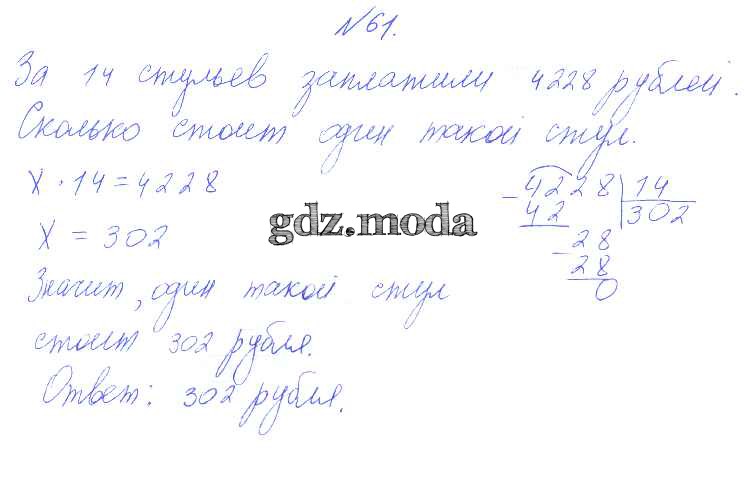 №61.
За 14 стульев заплатили 4228 рублей.
Сколько стоит один такой стул.
х · 14 = 4228
х = 302
- 4228 | 14
42 | 302
- 28
28
0
gdz.moda
Значит, один такой стул
стоит 302 рубля.
Ответ: 302 рубля.